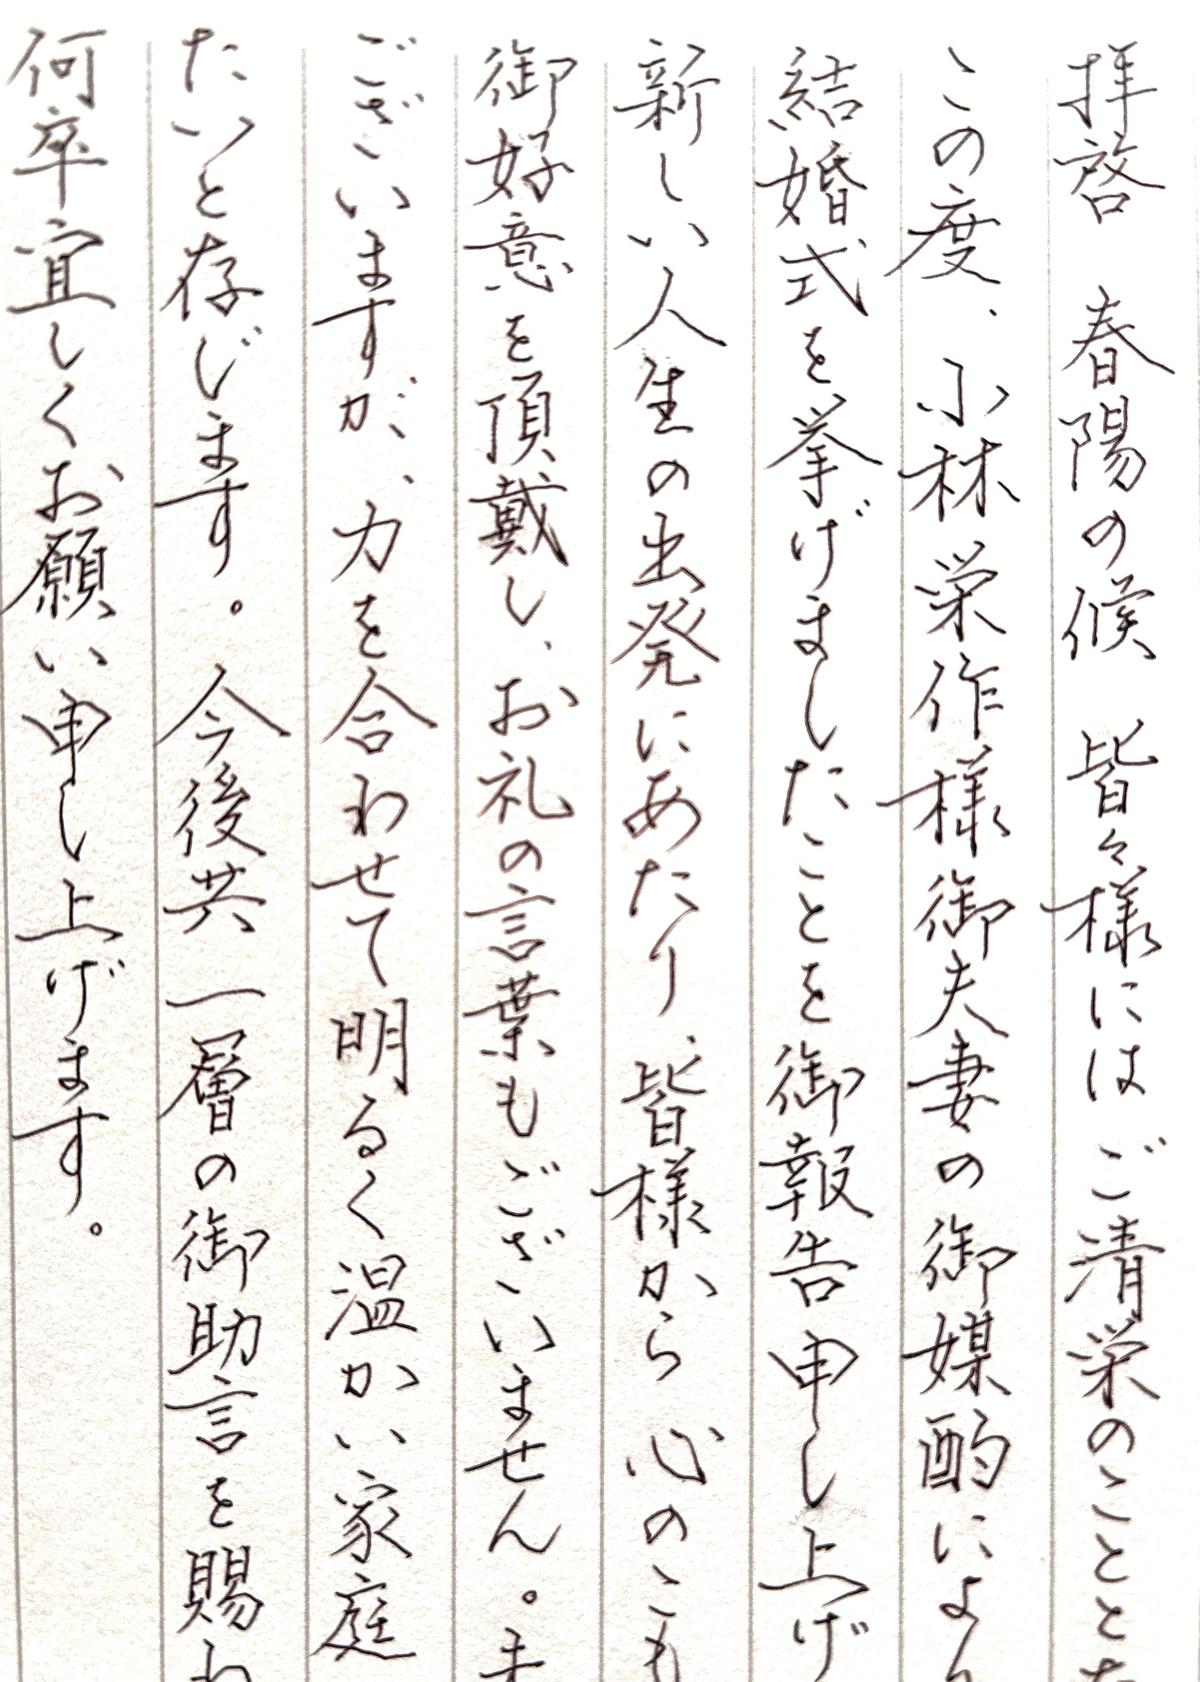 拝啓 春陽の候 皆々様には ご清栄のことと
この度、小林栄作様御夫妻の御媒酌によ
結婚式を挙げましたことを御報告申し上げ
新しい人生の出発にあたり、皆様から 心のこも
御好意を頂戴し、お礼の言葉もございません。
ございますが、力を合わせて明るく温かい家庭
たいと存じます。今後共一層の御助言を賜
何卒宜しくお願い申し上げます。